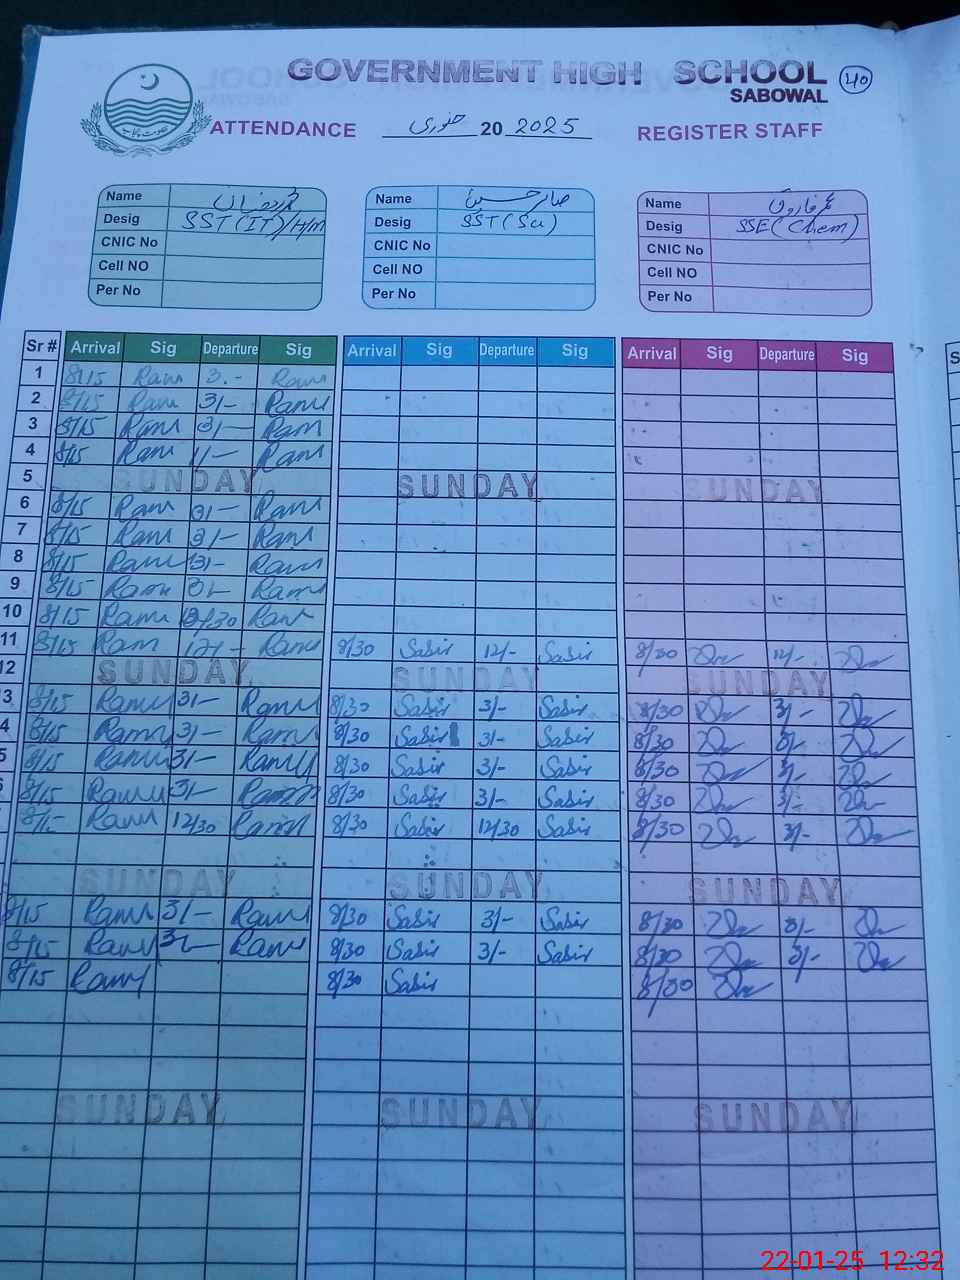 GOVERNMENT HIGH SCHOOL 40
SABOWAL
ATTENDANCE جنوری 20 2025 REGISTER STAFF
Name Name صابر حسین Name عمر فاروق
Desig SST (IT)/H/m Desig SST (Sci) Desig SSE (Chem)
CNIC No CNIC No CNIC No
Cell NO Cell NO Cell NO
Per No Per No Per No
Sr # Arrival Sig Departure Sig Arrival Sig Departure Sig Arrival Sig Departure Sig
1 8/15 Ram 3.- Ram
2 8/15 Ram 3/- Ram
3 8/15 Ram 3/- Ram
4 8/15 Ram 11- Ram
5 SUNDAY SUNDAY SUNDAY
6 8/15 Ram 3/- Ram
7 8/15 Ram 3/- Ram
8 8/15 Ram 3/- Ram
9 8/15 Ram 3/- Ram
10 8/15 Ram 12/30 Ram
11 8/15 Ram 12/- Ram 8/30 Sabir 12/- Sabir 8/30 12/-
12 SUNDAY SUNDAY SUNDAY
3 8/15 Ram 3/- Ram 8/30 Sabir 3/- Sabir 8/30 3/-
4 8/15 Ram 3/- Ram 8/30 Sabir 3/- Sabir 8/30 3/-
5 8/15 Ram 3/- Ram 8/30 Sabir 3/- Sabir 8/30 3/-
8/15 Ram 3/- Ram 8/30 Sabir 3/- Sabir 8/30 3/-
8/15 Ram 12/30 Ram 8/30 Sabir 12/30 Sabir 8/30 3/-
SUNDAY SUNDAY SUNDAY
8/15 Ram 3/- Ram 8/30 Sabir 3/- Sabir 8/30 3/-
8/15 Ram 3/- Ram 8/30 Sabir 3/- Sabir 8/30 3/-
8/15 Ram 8/30 Sabir 8/30
SUNDAY SUNDAY SUNDAY
22-01-25 12:32